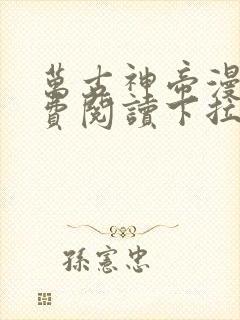 萬古神帝漫
費閱讀下拉
孫憲忠